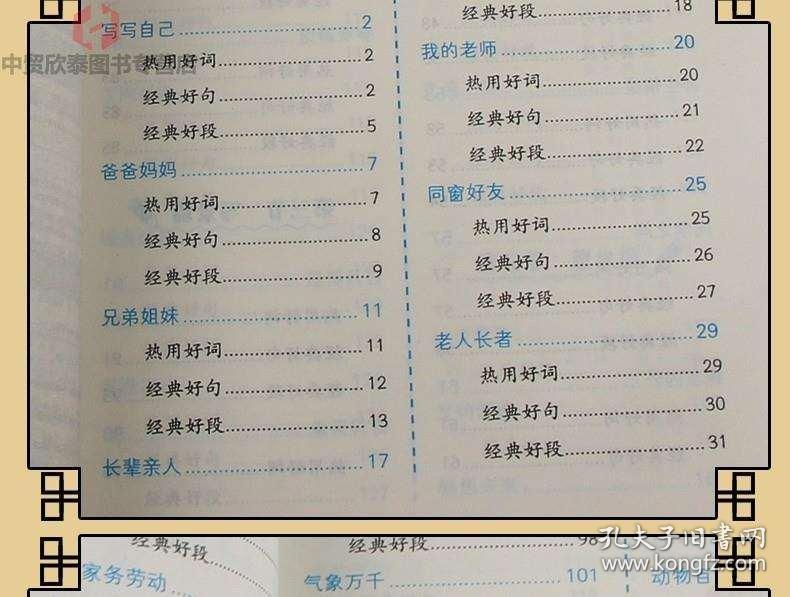 写写自己 2
热用好词 2
经典好句 2
经典好段 5
爸爸妈妈 7
热用好词 7
经典好句 8
经典好段 9
兄弟姐妹 11
热用好词 11
经典好句 12
经典好段 13
长辈亲人 17
经典好段 18
我的老师 20
热用好词 20
经典好句 21
经典好段 22
同窗好友 25
热用好词 25
经典好句 26
经典好段 27
老人长者 29
热用好词 29
经典好句 30
经典好段 31
中贸欣泰图书专营店
经典好段
家务劳动
经典好段 98
气象万千 101
动物百
孔夫子旧书网
www.kongfz.com